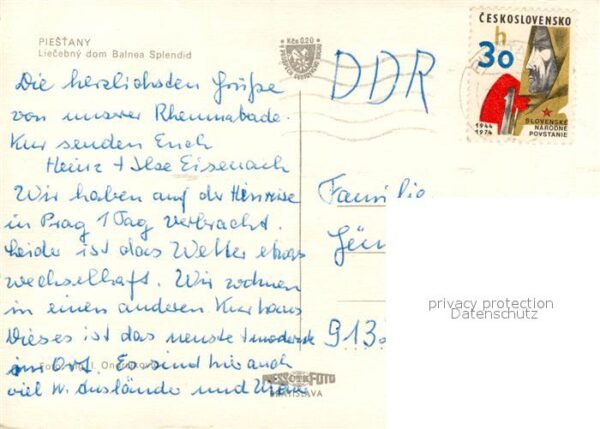 PIEŠŤANY
Liečebný dom Balnea Splendid
Kčs 0,20
ČESKOSLOVENSKO
h
30
1944
1974
SLOVENSKÉ
NÁRODNÉ
POVSTANIE
DDR
Die herzlichsten Grüße
von unserer Rheumabade-
Kur senden Euch
Heinz + Ilse Eisenach
Wir haben auf der Hinreise
in Prag 1 Tag verbracht.
Leider ist das Wetter etwas
wechselhaft. Wir wohnen
in einen anderen Kurhaus
Dieses ist das neuste + modernste
im Ort. Es sind hier auch
viel W. Ausländer und
Familie
913
privacy protection
Datenschutz
PRESSFOTO
BRATISLAVA